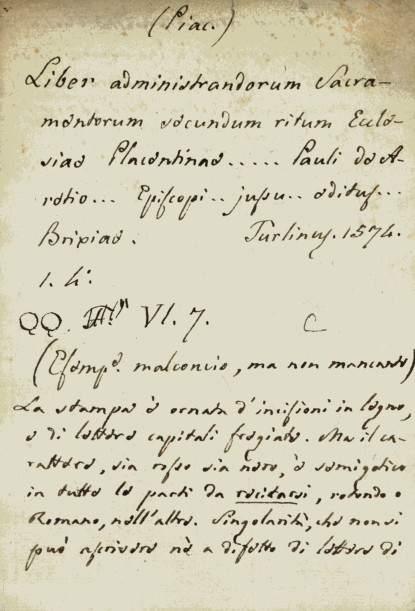 (Piac.)
Liber administrandorum Sacra-
mentorum secundum ritum Eccle-
siae Placentinae ..... Pauli de A-
retio ... Episcopi .. jussu .. editus ...
Brixiae. Turlinus. 1574.
1. 4°.
QQ. VI. 7. C
(Esemp.e malconcio, ma non mancante)
La stampa è ornata d'incisioni in legno,
e di lettere capitali fregiate. Ma il ca-
rattere, sia rosso sia nero, è semigotico
in tutte le parti da recitarsi, rotondo o
Romano, nell'altre. Singolarità, che non si
può ascrivere nè a difetto di lettere di